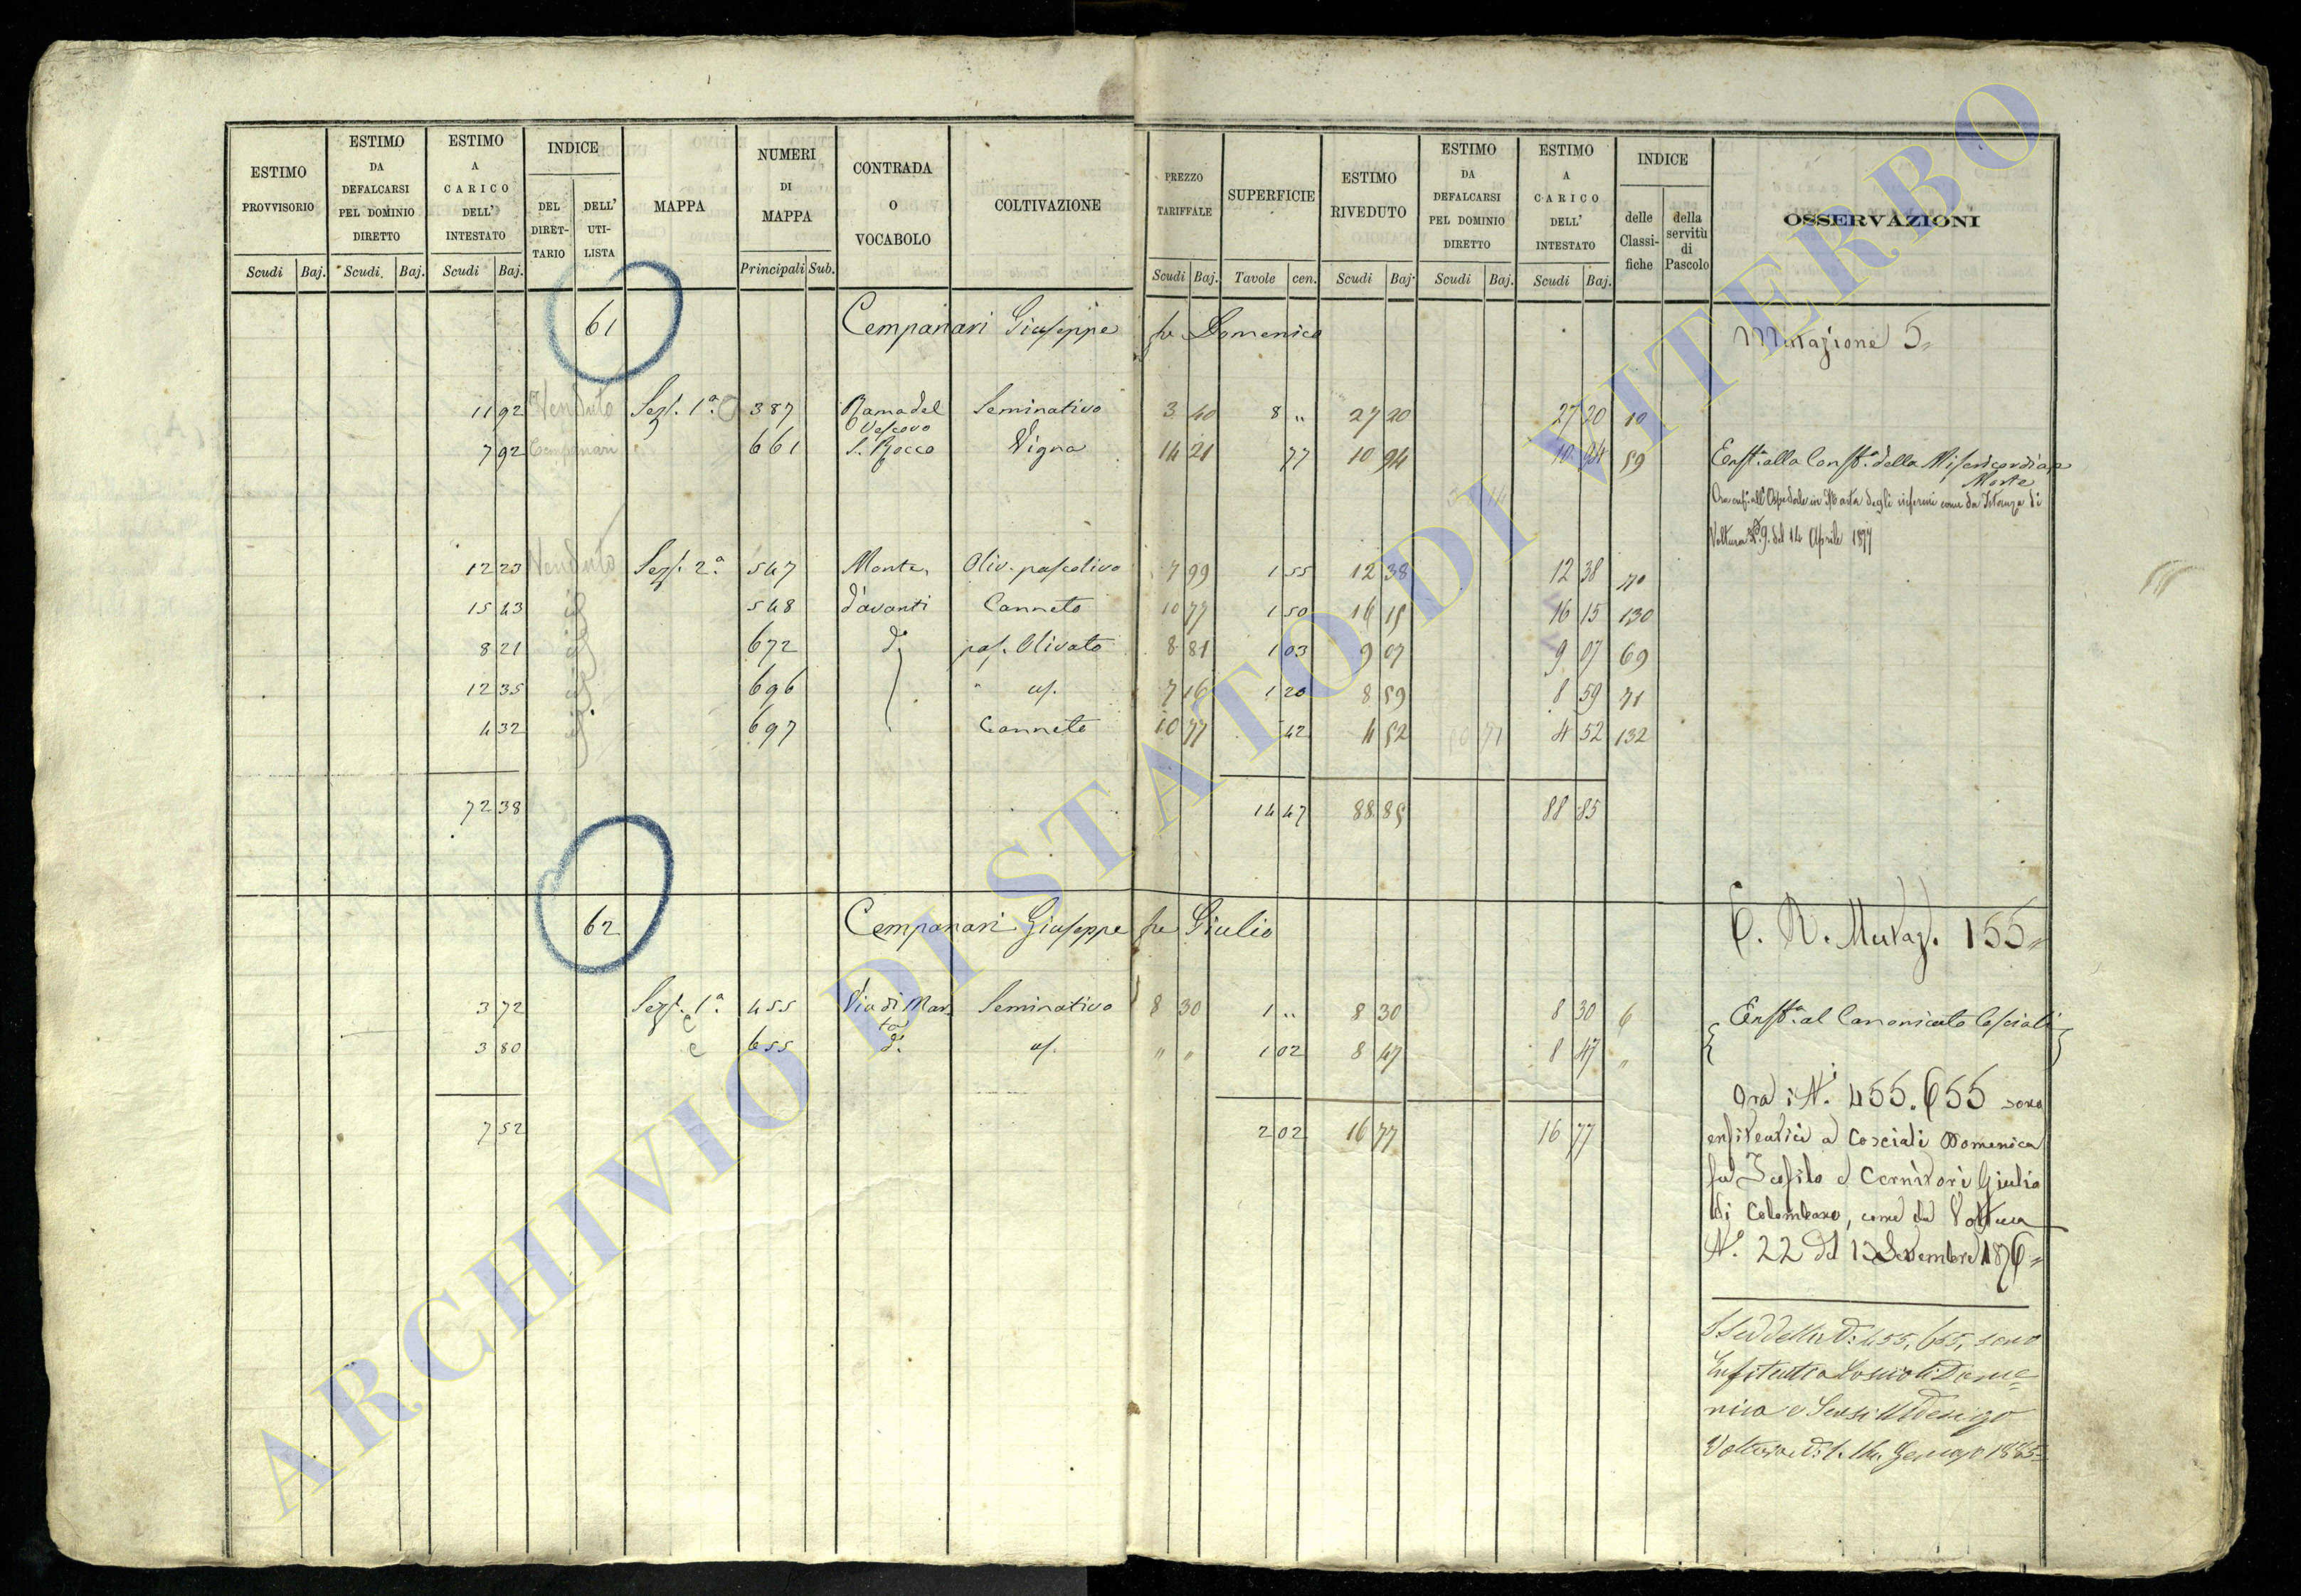 ESTIMO PROVVISORIO | ESTIMO DA DEFALCARSI PEL DOMINIO DIRETTO | ESTIMO A CARICO DELL' INTESTATO | INDICE | MAPPA | NUMERI DI MAPPA | CONTRADA O VOCABOLO | COLTIVAZIONE | PREZZO TARIFFALE | SUPERFICIE | ESTIMO RIVEDUTO | ESTIMO DA DEFALCARSI PEL DOMINIO DIRETTO | ESTIMO A CARICO DELL' INTESTATO | INDICE | OSSERVAZIONI
DEL DIRET-TARIO | DELL' UTI-LISTA | delle Classi-fiche | della servitù di Pascolo
Scudi | Baj. | Scudi | Baj. | Scudi | Baj. | Principali | Sub. | Scudi | Baj. | Tavole | cen. | Scudi | Baj. | Scudi | Baj. | Scudi | Baj.
61 Campanari Giuseppe fu Domenico Mutazione 5
11 92 Venduto Sez. 1ª 387 Rama del Vescovo Seminativo 3 40 8 " 27 20 27 20 10
7 92 Campanari 661 S. Rocco Vigna 14 21 77 10 94 10 94 59 Enft. alla Conf. della Misericordia e Morte
Ora enf. all' Ospedale in Marta degli infermi come da Istanza di
Voltura N. 9 del 14 Aprile 1877
12 23 Venduto Sez. 2ª 547 Monte Oliv. pascolivo 7 99 1 55 12 38 12 38 70
15 43 id 548 d'avanti Canneto 10 77 1 50 16 15 16 15 130
8 21 id 672 d. pas. Olivato 8 81 1 03 9 07 9 07 69
12 35 id 696 " us. 7 16 1 20 8 59 8 59 71
4 32 id 697 Canneto 10 77 42 4 52 4 52 132
72 38 14 47 88 85 88 85
62 Campanari Giuseppe fu Giulio C. R. Mutaz. 155
3 72 Sez. 1ª 455 Via di Marta Seminativo 8 30 1 " 8 30 8 30 6 Enft. al Canonicato Cosciali
3 80 655 d. us. " " 1 02 8 47 8 47 "
Ora i N. 455. 655 sono
7 52 2 02 16 77 16 77
enfiteutici a Cosciali Domenica
fu Teofilo e Cernitori Giulio
di Colombano, come da Voltura
N. 22 del 13 Settembre 1876
I suddetti N. 455, 655, sono
Enfiteutici a Cosciali Dome
nica e Sensi
Voltura N. 1. 16 Gennajo 1885
ARCHIVIO DI STATO DI VITERBO